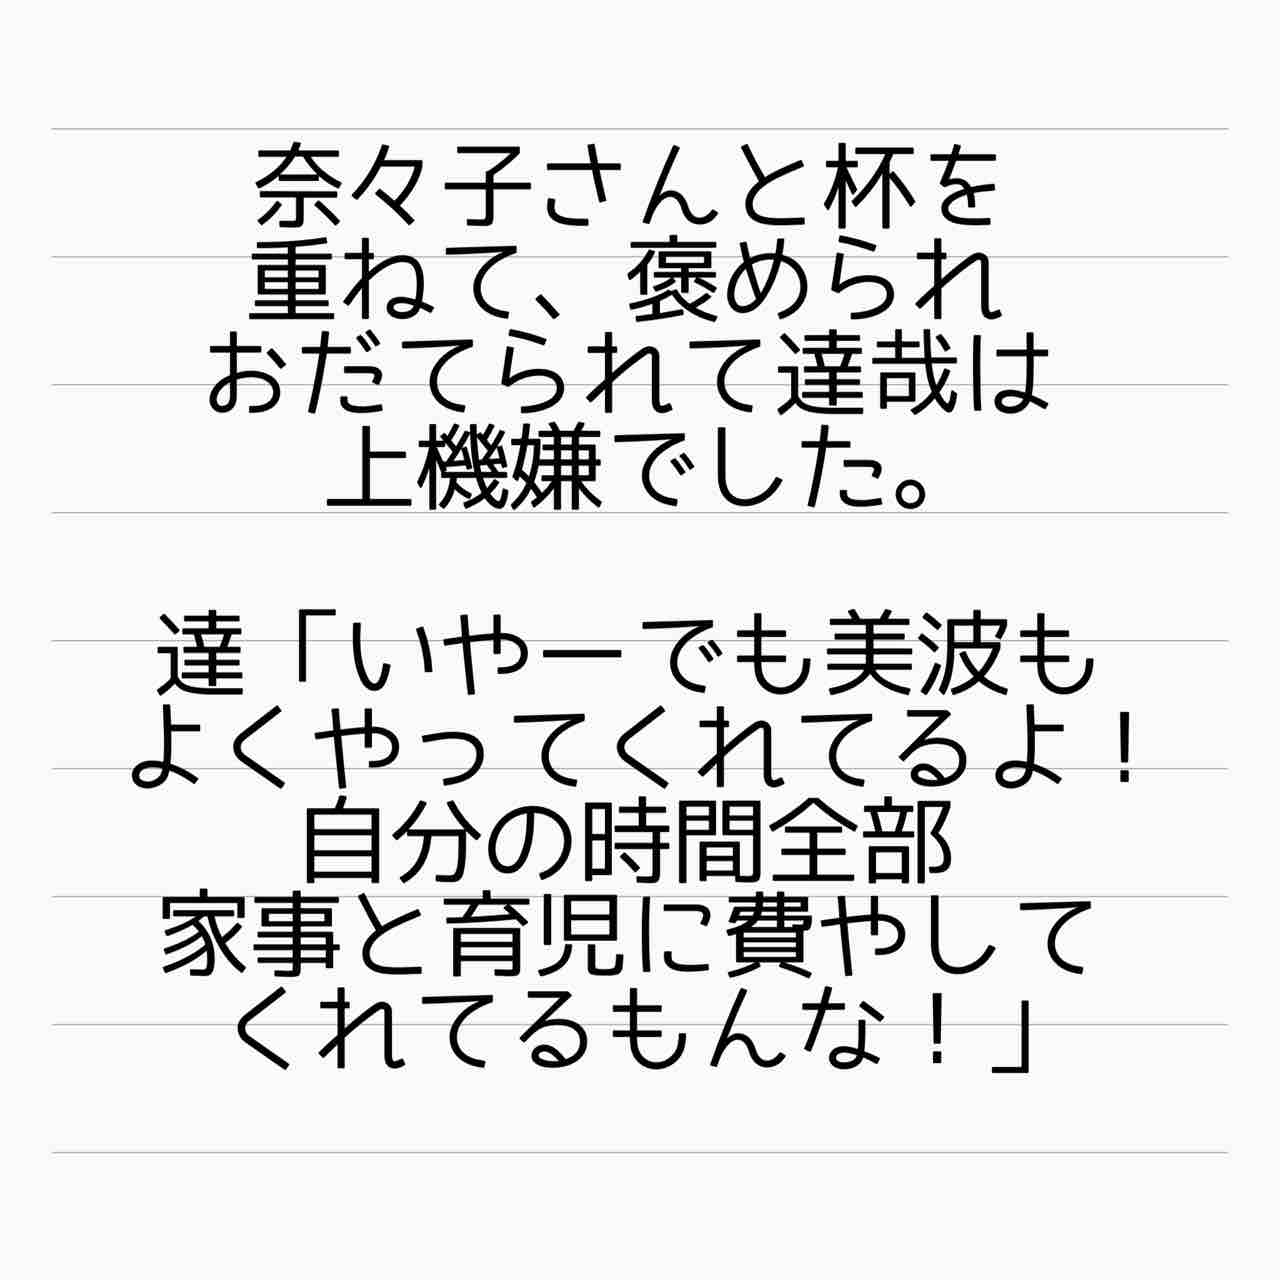 奈々子さんと杯を
重ねて、褒められ
おだてられて達哉は
上機嫌でした。
達「いやーでも美波も
よくやってくれてるよ！
自分の時間全部
家事と育児に費やして
くれてるもんな！」